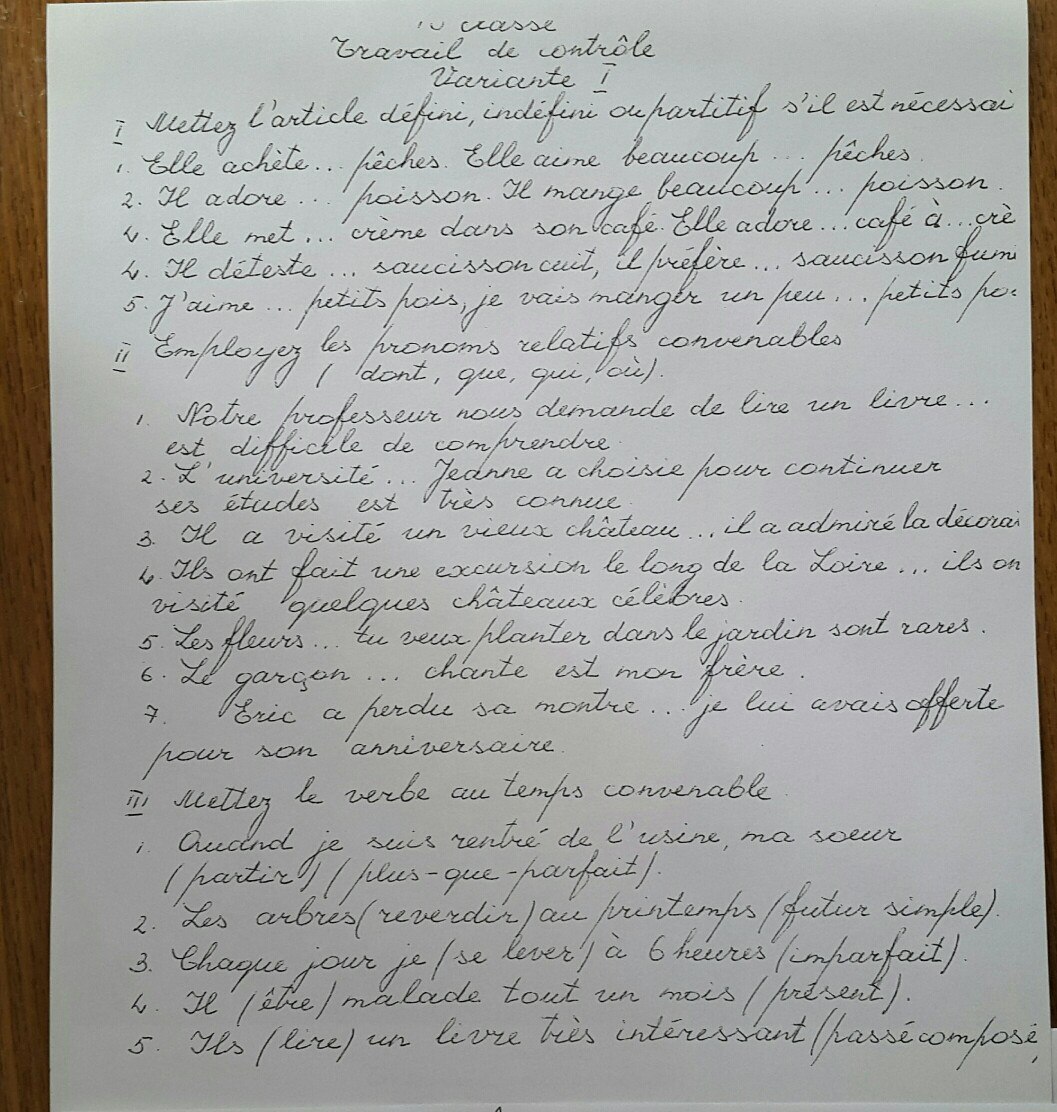 classe
Travail de contrôle
Variante I
I Mettez l'article défini, indéfini ou partitif s'il est nécessai
1. Elle achète... pêches. Elle aime beaucoup... pêches.
2. Il adore... poisson. Il mange beaucoup... poisson.
3. Elle met... crème dans son café. Elle adore... café à... crè
4. Il déteste... saucisson cuit, il préfère... saucisson fumé
5. J'aime... petits pois, je vais manger un peu... petits po
II Employez les pronoms relatifs convenables
( dont, que, qui, où).
1. Notre professeur nous demande de lire un livre...
est difficile de comprendre.
2. L'université... Jeanne a choisie pour continuer
ses études est très connue.
3. Il a visité un vieux château... il a admiré la décorai
4. Ils ont fait une excursion le long de la Loire... ils on
visité quelques châteaux célèbres.
5. Les fleurs... tu veux planter dans le jardin sont rares.
6. Le garçon... chante est mon frère.
7. Eric a perdu sa montre... je lui avais offerte
pour son anniversaire.
III Mettez le verbe au temps convenable
1. Quand je suis rentré de l'usine, ma soeur
(partir) (plus-que-parfait).
2. Les arbres (reverdir) au printemps (futur simple).
3. Chaque jour je (se lever) à 6 heures (imparfait).
4. Il (être) malade tout un mois (présent).
5. Ils (lire) un livre très intéressant (passé composé,